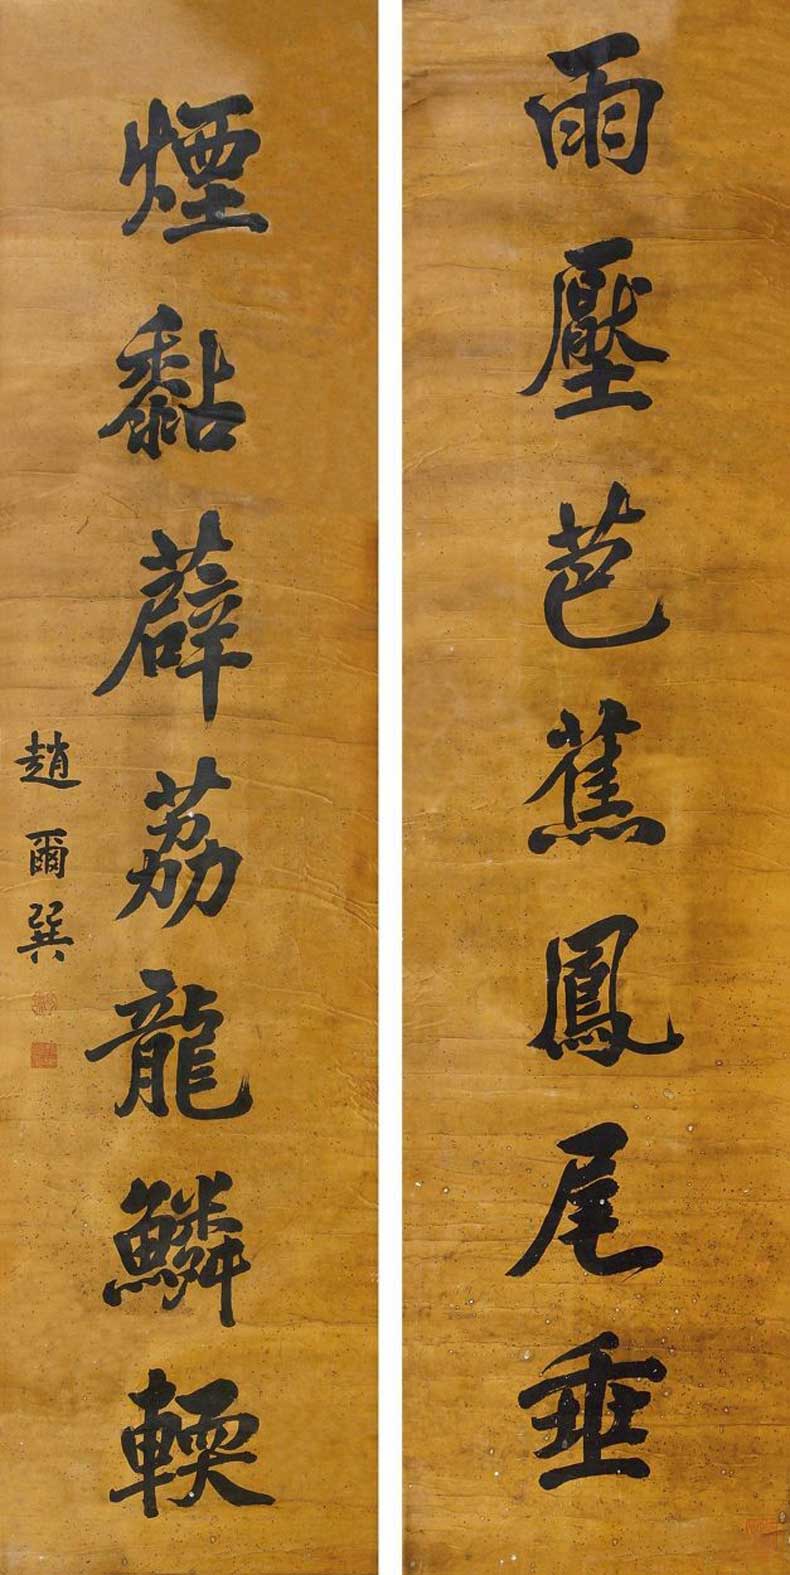 雨壓芭蕉鳳尾垂
煙黏薜荔龍鱗輭
趙爾巽